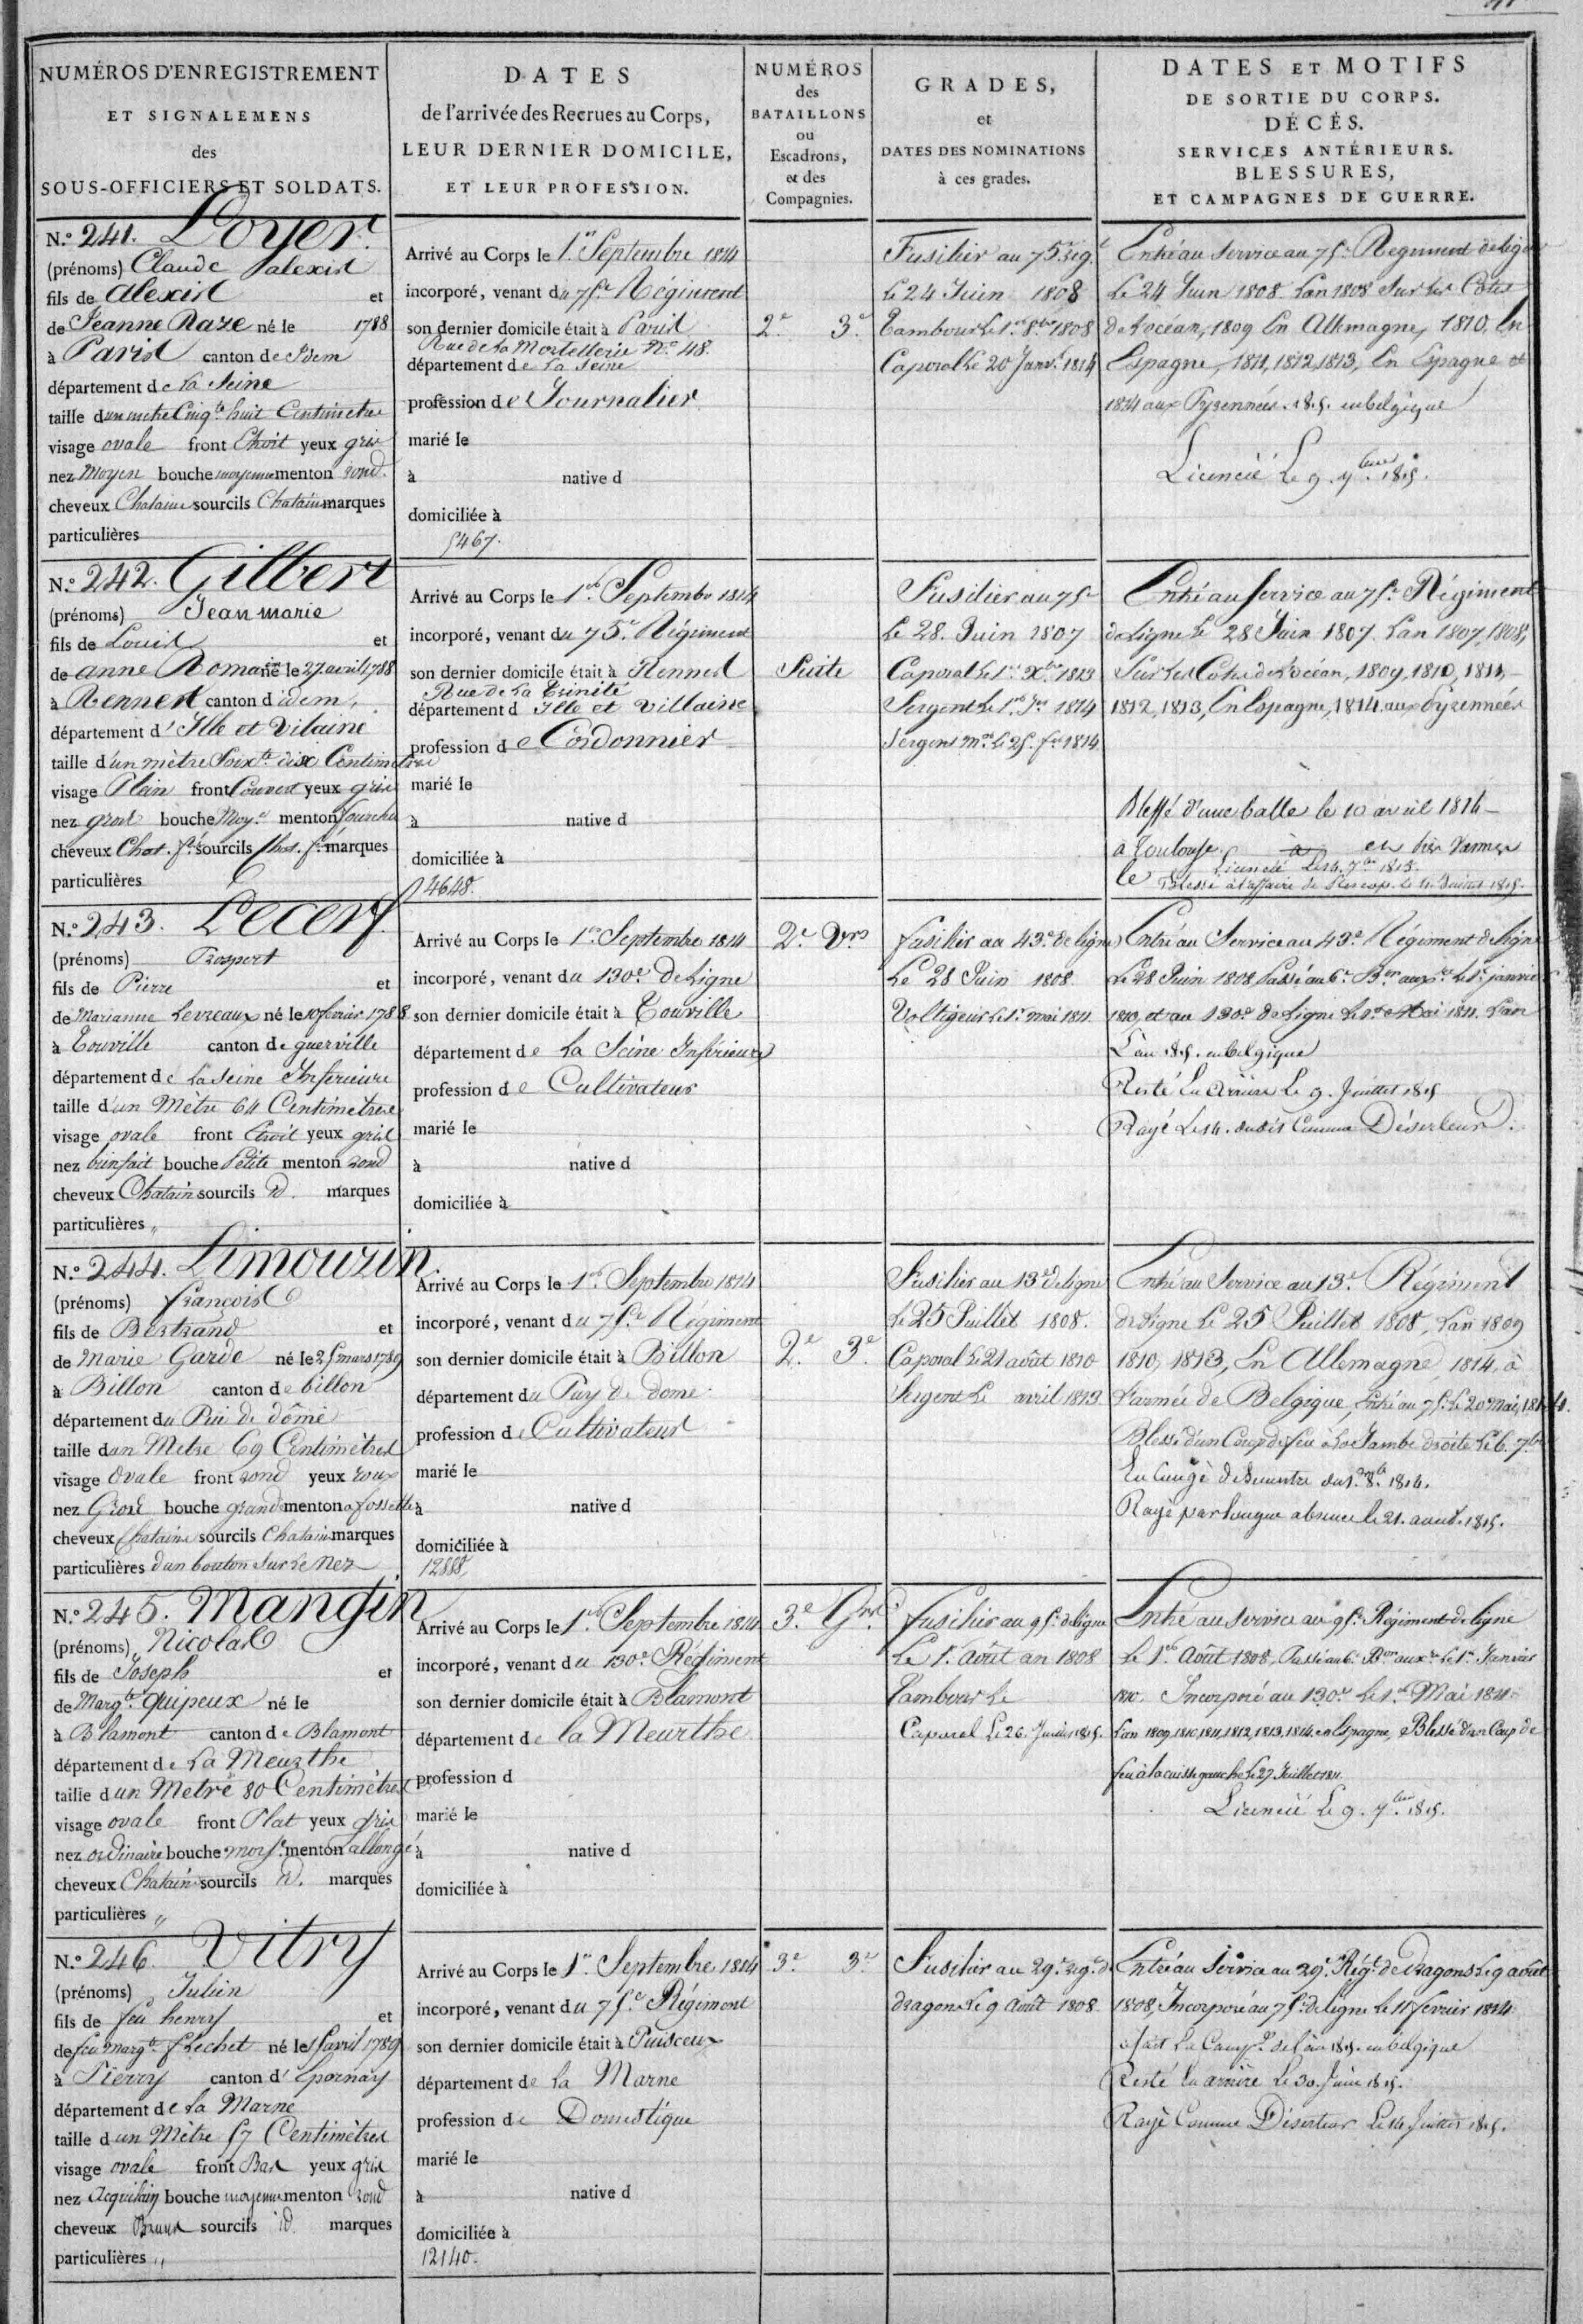 NUMÉROS D'ENREGISTREMENT
ET SIGNALEMENS
des
SOUS-OFFICIERS ET SOLDATS.
DATES
de l'arrivée des Recrues au Corps,
LEUR DERNIER DOMICILE,
ET LEUR PROFESSION.
NUMÉROS
des
BATAILLONS
ou
Escadrons,
et des
Compagnies.
GRADES,
et
DATES DES NOMINATIONS
à ces grades.
DATES ET MOTIFS
DE SORTIE DU CORPS.
DÉCÉS.
SERVICES ANTÉRIEURS.
BLESSURES,
ET CAMPAGNES DE GUERRE.
N.° 241. Loyer.
(prénoms) Claude alexis
fils de Alexis et
de Jeanne Raze né le 1788
à Paris canton de Idem
département de La Seine
taille d'un metre Cinq.te huit Centimetres
visage ovale front Etroit yeux gris
nez Moyen bouche moyenne menton rond.
cheveux Chatains sourcils Chatains marques
particulières
Arrivé au Corps le 1.er Septembre 1814
incorporé, venant du 75.e Régiment
son dernier domicile était à Paris
Rue de la Mortellerie N.o 48.
département de La Seine
profession de Journalier
marié le
à native d
domiciliée à
5467.
2.e 3.e
Fusilier au 75.e reg.t
Le 24 Juin 1808
Tambour Le 1.er 8.bre 1808
Caporal Le 20 Janv.r 1814
Entré au Service au 75.e Regiment de ligne
Le 24 Juin 1808. L'an 1808 Sur Les Côtes
de L'océan, 1809 En Allemagne, 1810, En
Espagne, 1811, 1812, 1813, En Espagne et
1814 aux Pyrennées. 1815. en belgique
Licencié Le 9. 7.bre 1815.
N.° 242. Gilbert
(prénoms) Jean marie
fils de Louis et
de anne Romain né le 27 avril 1788
à Rennes canton d'idem,
département d'Ille et Vilaine
taille d'un mètre Soix.te dix Centimetres
visage Plein front Couvert yeux gris
nez gros bouche Moy.e menton fourchu
cheveux Chat. f.é sourcils Chat. f.é marques
particulières
Arrivé au Corps le 1.er Septembre 1814
incorporé, venant du 75.e Régiment
son dernier domicile était à Rennes
Rue de la Trinité
département d Ille et Villaine
profession de Cordonnier
marié le
à native d
domiciliée à
4648.
Suite
Fusilier au 75.e
Le 28. Juin 1807
Caporal Le 1.er X.bre 1813
Sergent Le 1.er J.er 1814
Sergent m.or Le 25. f.er 1814
Entré au Service au 75.e Régiment
de Ligne Le 28 Juin 1807. L'an 1807, 1808,
Sur Les Côtes de L'océan, 1809, 1810, 1811,
1812, 1813, En Espagne, 1814. aux Pyrennées
Blessé d'une balle le 10 avril 1814
à Toulouse
Licencié Le 14. 7.bre 1815.
le Blessé à l'affaire de
N.° 243. Lecerf.
(prénoms) Prospert
fils de Pierre et
de Marianne Levreaux né le 10 fevrier 1788
à Touville canton de guerville
département de La Seine Inferieure
taille d'un Mètre 64 Centimètres
visage ovale front Etroit yeux gris
nez bienfait bouche Petite menton rond
cheveux Chatain sourcils id. marques
particulières "
Arrivé au Corps le 1.er Septembre 1814
incorporé, venant du 130.e De Ligne
son dernier domicile était à Touville
département de La Seine Inférieure
profession de Cultivateur
marié le
à native d
domiciliée à
2.e V.rs
fusilier au 43.e de ligne
Le 28 Juin 1808.
Voltigeur Le 1.er mai 1811.
Entré au Service au 43.e Régiment de ligne
Le 28 Juin 1808, Passé au 6.e B.on aux.re Le 1.er janvier
1810, et au 130.e de Ligne Le 1.er Mai 1811. L'an
L'an 1815. en belgique
Resté En arrière Le 9. Juillet 1815
Rayé Le 14. dudit Comme Déserteur.
N.° 244. Limouzin.
(prénoms) François
fils de Bertrand et
de Marie Garde né le 25 mars 1789
à Billon canton de billon
département du Pui de dôme
taille d'un Metre 69 Centimètres
visage Ovale front rond yeux roux
nez Gros bouche grande menton a fossette
cheveux Chatains sourcils Chatains marques
particulières d'un bouton sur Le nez
Arrivé au Corps le 1.er Septembre 1814
incorporé, venant du 75.e Régiment
son dernier domicile était à Billon
département du Puy de dome
profession de Cultivateur
marié le
à native d
domiciliée à
12888.
2.e 3.e
Fusilier au 13.e de ligne
Le 25 Juillet 1808.
Caporal Le 21 août 1810
Sergent Le avril 1813
Entré au Service au 13.e Régiment
de Ligne Le 25 Juillet 1808, L'an 1809
1810, 1813, En Allemagne, 1814, à
L'armée de Belgique, Entré au 75.e Le 20 Mai, 1814.
Blessé d'un Coup de feu à La Jambe droite Le 6. 7.bre
En Congé de Semestre du 1.er 8.bre 1814.
Rayé par longue absence le 21. aoust. 1815.
N.° 245. Mangin
(prénoms) Nicolas
fils de Joseph et
de Marg.te Quipeux né le
à Blamont canton de Blamont
département de La Meurthe
taille d'un Metre 80 Centimètres
visage ovale front Plat yeux gris
nez ordinaire bouche moy.e menton allongé
cheveux Chatain sourcils id. marques
particulières "
Arrivé au Corps le 1.er Septembre 1814
incorporé, venant du 130.e Régiment
son dernier domicile était à Blamont
département de la Meurthe
profession d
marié le
à native d
domiciliée à
3.e G.rs
fusilier au 95.e de ligne
Le 1.er Août an 1808
Tambour Le
Caporal Le 26. Janvier 1815.
Entré au service au 95.e Régiment de ligne
Le 1.er Août 1808, Passé au 6.e B.on aux.re Le 1.er Janvier
1810. Incorporé au 130.e Le 1.er Mai 1811
L'an 1809, 1810, 1811, 1812, 1813, 1814 en Espagne, Blessé d'un Coup de
feu à la cuisse gauche Le 27 Juillet 1811.
Licencié Le 9. 7.bre 1815.
N.° 246. Vitry
(prénoms) Julien
fils de feu henry et
de feu Marg.te flechet né le 15 avril 1789
à Pierry canton d'Epernay
département de La Marne
taille d'un Mètre 57 Centimètres
visage ovale front Bas yeux gris
nez Acquilain bouche moyenne menton rond
cheveux Bruns sourcils id. marques
particulières "
Arrivé au Corps le 1.er Septembre 1814
incorporé, venant du 75.e Régiment
son dernier domicile était à Puiseux
département de la Marne
profession de Domestique
marié le
à native d
domiciliée à
12140.
3.e 3.e
Fusilier au 29.e reg.t de
dragons Le 9 Août 1808.
Entré au Service au 29.e Rég.t de Dragons Le 9 août
1808, Incorporé au 75.e de Ligne Le 11 fevrier 1814.
a fait La Camp.e de l'an 1815. en belgique
Resté En arrière Le 30. Juin 1815.
Rayé Comme Déserteur Le 14 Juillet 1815.